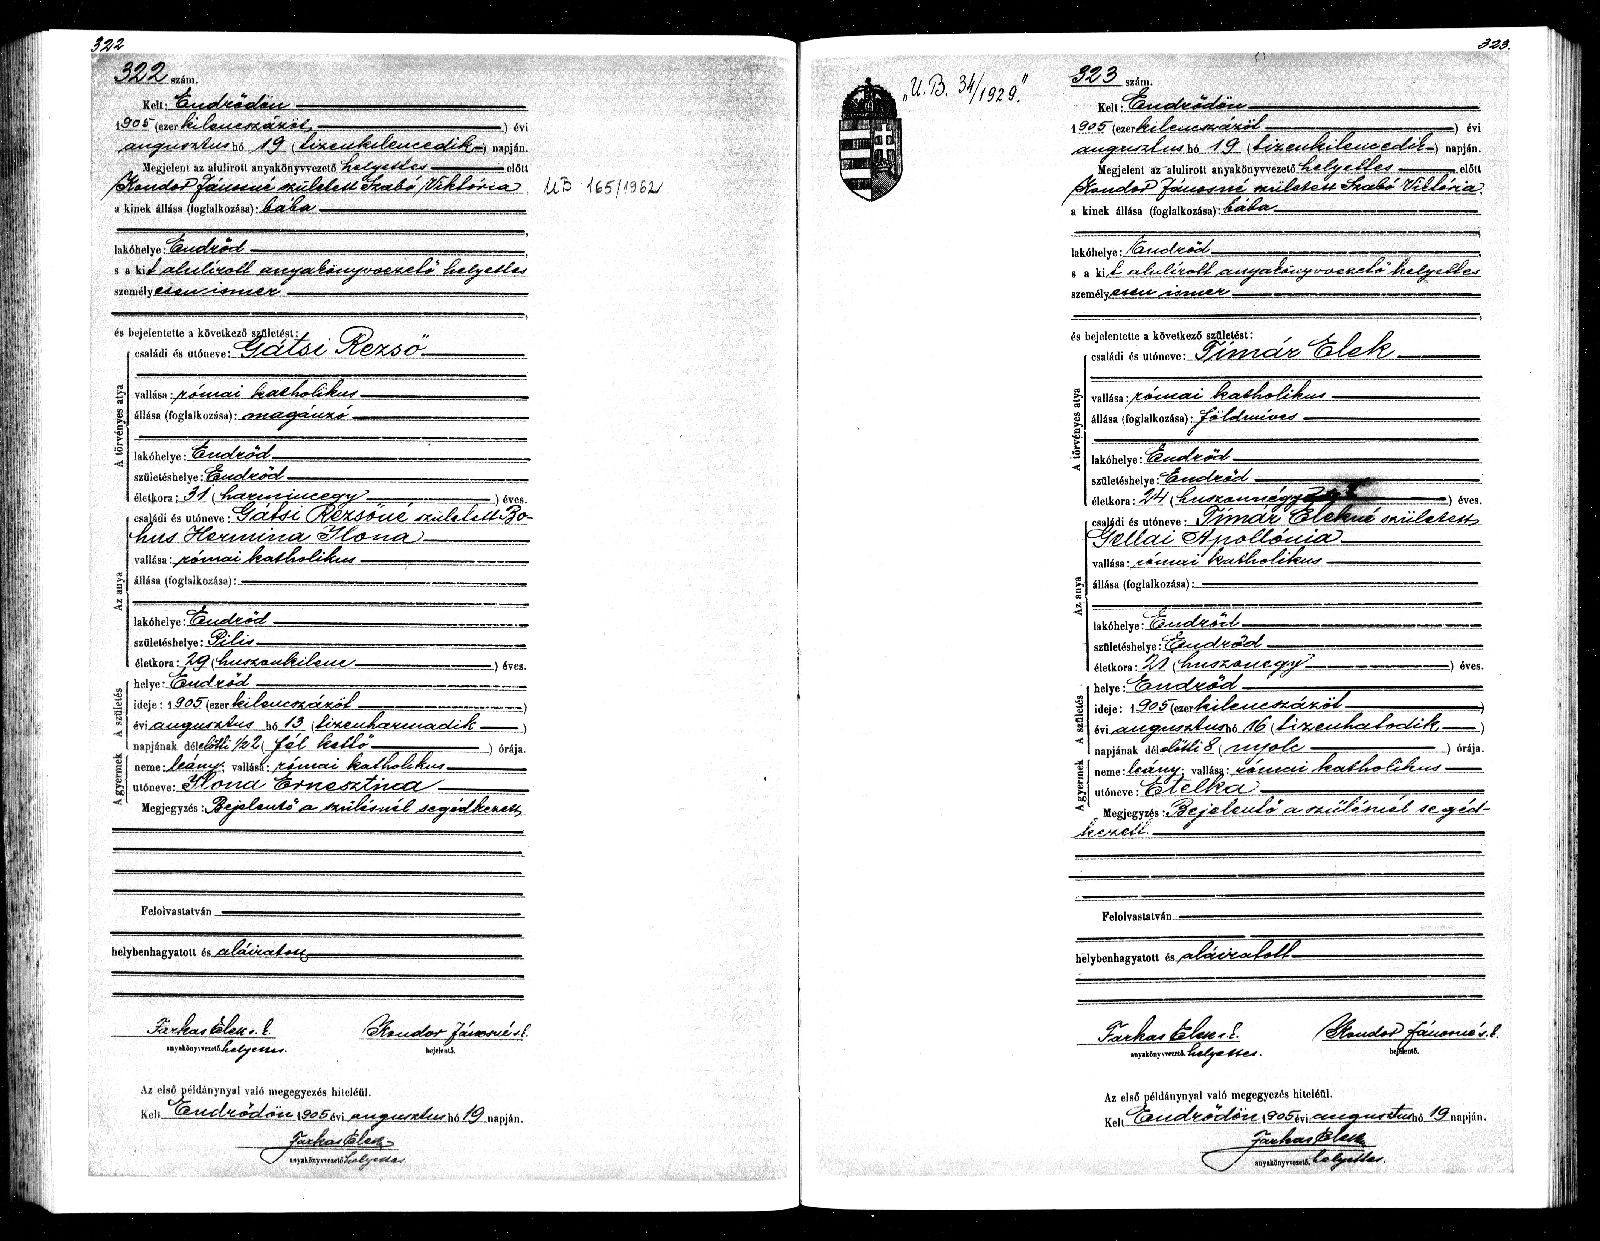 322
322 szám.
Kelt: Endrődön
1905 (ezer kilenczázöt) évi
augusztus hó 19 (tizenkilencedik) napján.
Megjelent az alulirott anyakönyvvezető helyettes előtt
Kondor Jánosné született Szabó Viktória
a kinek állása (foglalkozása): bába
lakóhelye: Endrőd
s a kit alulírott anyakönyvvezető helyettes
személyesen ismer
és bejelentette a következő születést:
A törvényes atya
családi és utóneve: Gátsi Rezső
vallása: római katholikus
állása (foglalkozása): magánzó
lakóhelye: Endrőd
születéshelye: Endrőd
életkora: 31 (harmincegy) éves.
Az anya
családi és utóneve: Gátsi Rezsőné született Bo-
hus Hermina Ilona
vallása: római katholikus
állása (foglalkozása):
lakóhelye: Endrőd
születéshelye: Pilis
életkora: 29 (huszonkilenc) éves.
A születés
helye: Endrőd
ideje: 1905 (ezer kilenczázöt
évi augusztus hó 13 (tizenharmadik)
napjának délelőtti 1/2 2 (fél kettő) órája.
A gyermek
neme: leány; vallása: római katholikus
utóneve: Ilona Ernesztina
Megjegyzés: Bejelentő a szülésnél segédkezett
Felolvastatván
helybenhagyatott és aláiratott
Farkas Elek s. k. Kondor Jánosné s. k.
anyakönyvvezető helyettes. bejelentő.
Az első példánynyal való megegyezés hiteléül.
Kelt Endrődön 1905 évi augusztus hó 19 napján.
Farkas Elek
anyakönyvvezető helyettes
UB 165/1962
„U. B. 34/1929."
323.
323 szám.
Kelt: Endrődön
1905 (ezer kilenczázöt) évi
augusztus hó 19 (tizenkilencedik) napján.
Megjelent az alulirott anyakönyvvezető helyettes előtt
Kondor Jánosné született Szabó Viktória
a kinek állása (foglalkozása): bába
lakóhelye: Endrőd
s a kit alulírott anyakönyvvezető helyettes
személyesen ismer
és bejelentette a következő születést:
A törvényes atya
családi és utóneve: Tímár Elek
vallása: római katholikus
állása (foglalkozása): földmíves
lakóhelye: Endrőd
születéshelye: Endrőd
életkora: 24 (huszonnégy) éves.
Az anya
családi és utóneve: Tímár Elekné született
Gellai Apollónia
vallása: római katholikus
állása (foglalkozása):
lakóhelye: Endrőd
születéshelye: Endrőd
életkora: 21 (huszonegy) éves.
A születés
helye: Endrőd
ideje: 1905 (ezer kilenczázöt)
évi augusztus hó 16 (tizenhatodik)
napjának délelőtti 8 (nyolc) órája.
A gyermek
neme: leány; vallása: római katholikus
utóneve: Etelka
Megjegyzés: Bejelentő a szülésnél segéd-
kezett
Felolvastatván
helybenhagyatott és aláiratott
Farkas Elek s. k. Kondor Jánosné s. k.
anyakönyvvezető helyettes. bejelentő.
Az első példánynyal való megegyezés hiteléül.
Kelt Endrődön 1905 évi augusztus hó 19 napján.
Farkas Elek
anyakönyvvezető helyettes.